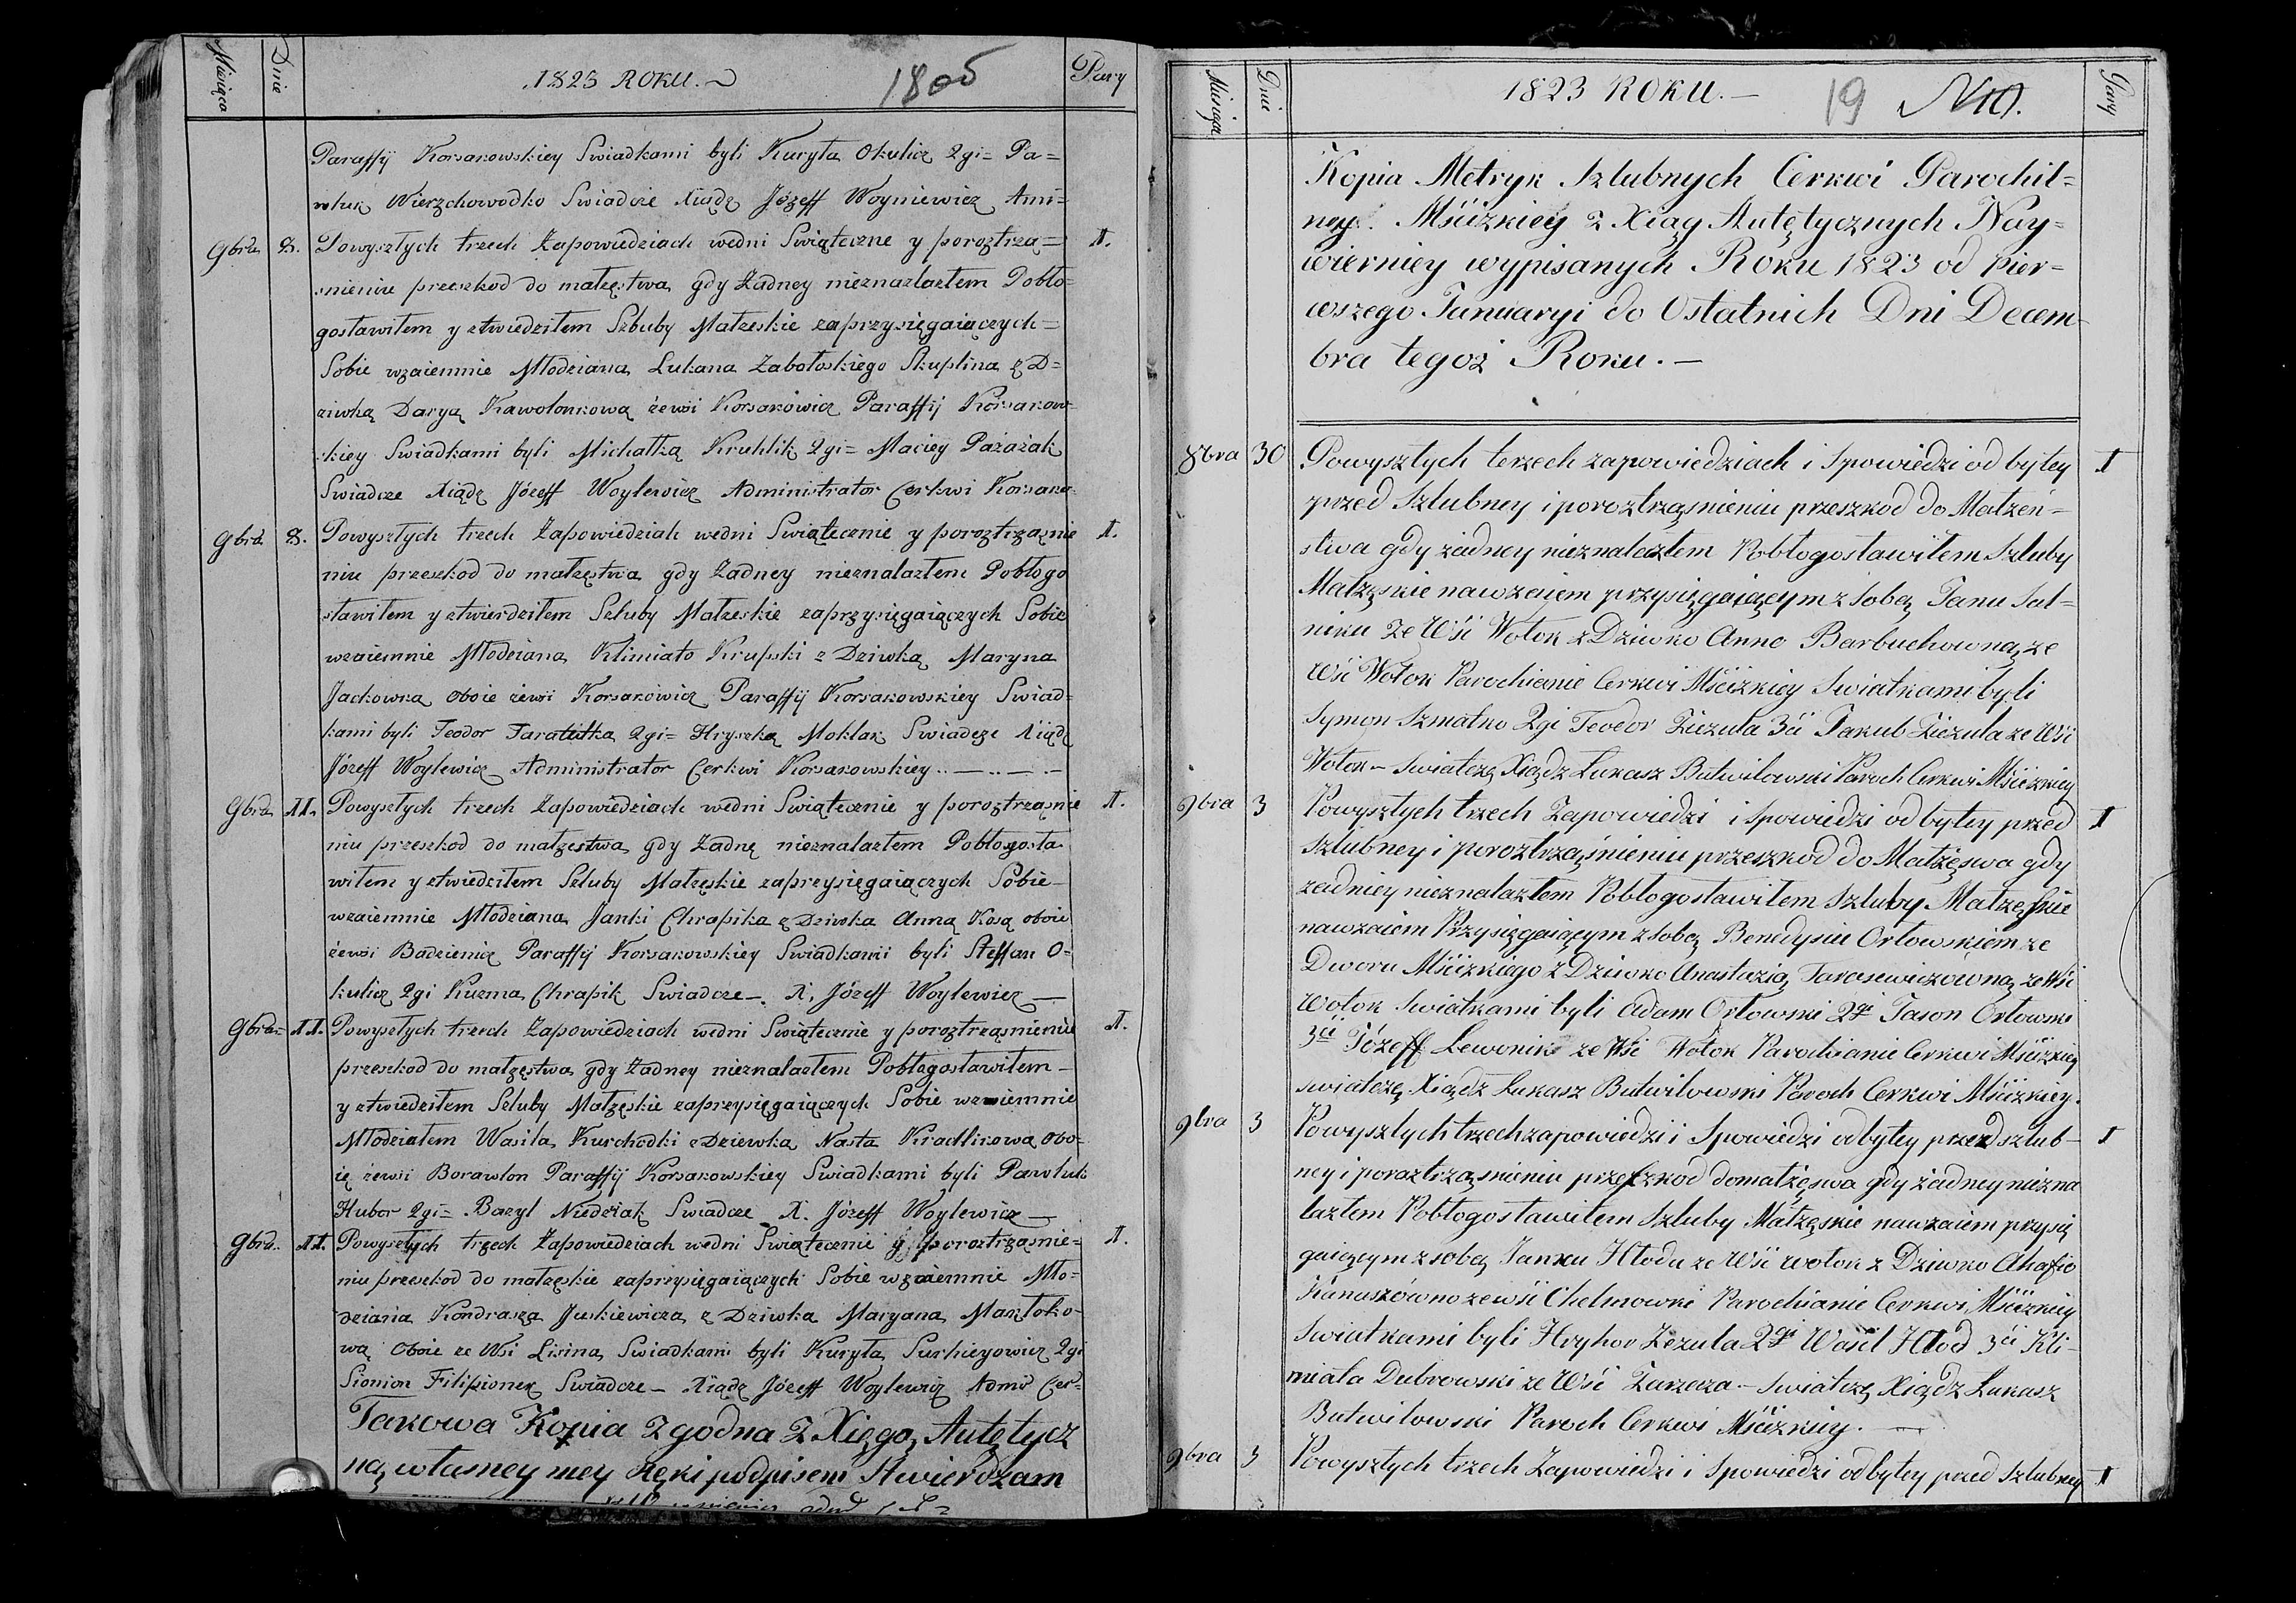 Miesiąca
Dnie
1823 ROKU.
1805
Pary
Paraffij Korsakowskiey Swiadkami byli Kuryła Okulicz 2gi= Pa=
wluk Wierzchowodko Swiadcze Xiądz Józeff Woyniewicz Ami=
9bra 8. Powyszłych trzech Zapowiedziach wedni Swiąteczne y poroztrzą= 1.
snieniu przeszkod do małzęstwa gdy Zadney nieznazlazłem Pobło=
gosławiłem y ztwiedziłem Szluby Małzeskie zaprzysięgaiączych=
Sobie wzaiemnie Młodziana Lukana Zabołoskiego Skuplina z D=
ziwką Daryą Kawolonkową zewsi Korsakowicz Paraffij Korsakow=
skiey Swiadkami byli Michałką Kruhlik 2gi= Maciey Pażażak
Swiadcze Xiądz Józeff Woylewicz Administrator Cerkwi Korsako=
9bra 8. Powyszłych trzech Zapowiedziah wedni Swiątecznie y poroztrząznie 1.
niu przeszkod do małzęstwa gdy Zadney nieznalazłem Pobłogo
sławiłem y ztwierdziłem Szluby Małzeskie zaprzysięgaiączych Sobie
wzaiemnie Młodziana Klimiato Krupski z Dziwką Maryna
Jackowka oboie zewsi Korsakowicz Paraffij Korsakowskiey Swiad=
kami byli Teodor Taratutka 2gi= Hryszka Moklak Swiadcze Xiądz
Józeff Woylewicz Administrator Cerkwi Korsakowskiey..—..—.-
9bra 11. Powyszłych trzech Zapowiedziach wedni Swiątecznie y poroztrząsnie 1.
niu przeszkod do małzęstwa gdy Zadnę nieznalazłem Pobłogosła
wiłem y ztwiedziłem Szluby Małzęskie zaprzysięgaiączych Sobie-
wzaiemnie Młodziana Janki Chrapika z Dziwka Anną Kosą oboie
zewsi Badzienicz Paraffij Korsakowskiey Swiadkami byli Steffan O=
kulicz 2gi Kuzma Chrapik Swiadcze-. X. Józeff Woylewicz—
9bra= 11. Powyszłych trzech Zapowiedziach wedni Swiątecznie y poroztrząsnieniu 1.
przeszkod do małzęstwa gdy Zadney nieznalazłem Pobłogosławiłem-
y ztwiedziłem Szluby Małzęskie zaprzysięgaiączych Sobie wzaiemnie
Młodziałem Wasila Kurchodki z Dziewka Nasta Kradlikowa obo-
ię zewsi Borawlon Paraffij Korsakowskiey Swiadkami byli Pawluk
Hubor 2gi= Bazyl Niedziak Swiadcze X. Józeff Woylewicz—
9bra.. 11. Powyszłych trzech Zapowiedziach wedni Swiątecznie y poroztrząsnie= 1.
niu przeszkod do małzęskie zaprzysięgaiączych Sobie wzaiemnie Mło=
dziana Kondrasza Juskiewicza z Dziwka Maryana Masztoko-
wą Oboie ze Wsi Lisina Swiadkami byli Kuryła Surhieyowicz 2gi
Sionion Filipionek Swiadcze- Xiądz Józeff Woylewicz Admi Cer=
Takowa Kopia Zgodna Z Xięgą Autętycz
ną własney mey ręki podpisem Stwierdzam
Miesiąca
Dnie
1823 ROKU.—
19
N10.
Pary
Kopia Metryk Szlubnych Cerkwi Parochil=
ney. Mścizkiey z Xiąg Autętycznych Nay=
wierniey wypisanych Roku 1823 od pier=
wszego Januaryi do Ostatnich Dni Decem-
bra tegoż Roku.—
8bra 30 Powyszłych terzech zapowiedziach i Spowiedzi odbytey 1
przed Szlubney i poroztrząsnieniu przeszkod do Małzeń=
stwa gdy żadney nieznalazłem Pobłogosławiłem Szluby
Małzęskie nawzaiem przysięgaiącym z Sobą Janu Sal=
niku Ze Wsi Wołok z Dziwko Anno Barbuchowną ze
Wsi Wołok Parochianie Cerkwi Mścizkiey Swiatkami byli
Symon Szmatko 2gi Teodor Ziezula 3ci Jakub Ziezula ze Wsi
Wołok- Swiatczę Xiądz Łukasz Butwiłowski Paroch Cerkwi Mścizkiey
9bra 3 Powyszłych trzech Zapowiedzi i Spowiedzi odbytey przed 1
szlubney i poroztrząśnieniu przeszkod do Małżęswa gdy
zadniey nieznalazłem Pobłogosławiłem Szluby Małzęskie
nawzaiem Przysięgaiącym z Sobą Benedysiu Orłowskiem ze
Dworu Mścizkiego z Dziwko Anastazią Tarasewiczowną ze Wsi
Wołok Swiatkami byli Adam Orłowski 2gi Jason Orłowski
3ci Józeff Lewonik ze Wsi Wołok Parochianie Cerkwi Mścizkiey
swiatczę Xiądz Łukasz Butwiłowski Paroch Cerkwi Mścizkiey.
9bra 3 Powyszłych trzech zapowiedzi i Spowiedzi odbytey przed szlub- 1
ney i poroztrząsnieniu przeszkod domałżęswa gdy żadney niezna
lazłem Pobłogosławiłem Szluby Małzęskie nawzaiem przysię
gaiącym z sobą Janku Hłodu ze Wsi wołok z Dziwko Ahafio
Hanuszówno zewsi Chelmowki Parochianie Cerkwi Mścizkiey
Swiatkami byli Hryhor Zezula 2gi Wasil Hłod 3ci Kli-
miata Dubrowski ze Wsi Zarzecza- Swiatczę Xiądz Łukasz
Butwiłowski Paroch Cerkwi Mścizkiey.—
9bra 3 Powyszłych trzech Zapowiedzi i Spowiedzi odbytey przed Szlubney 1